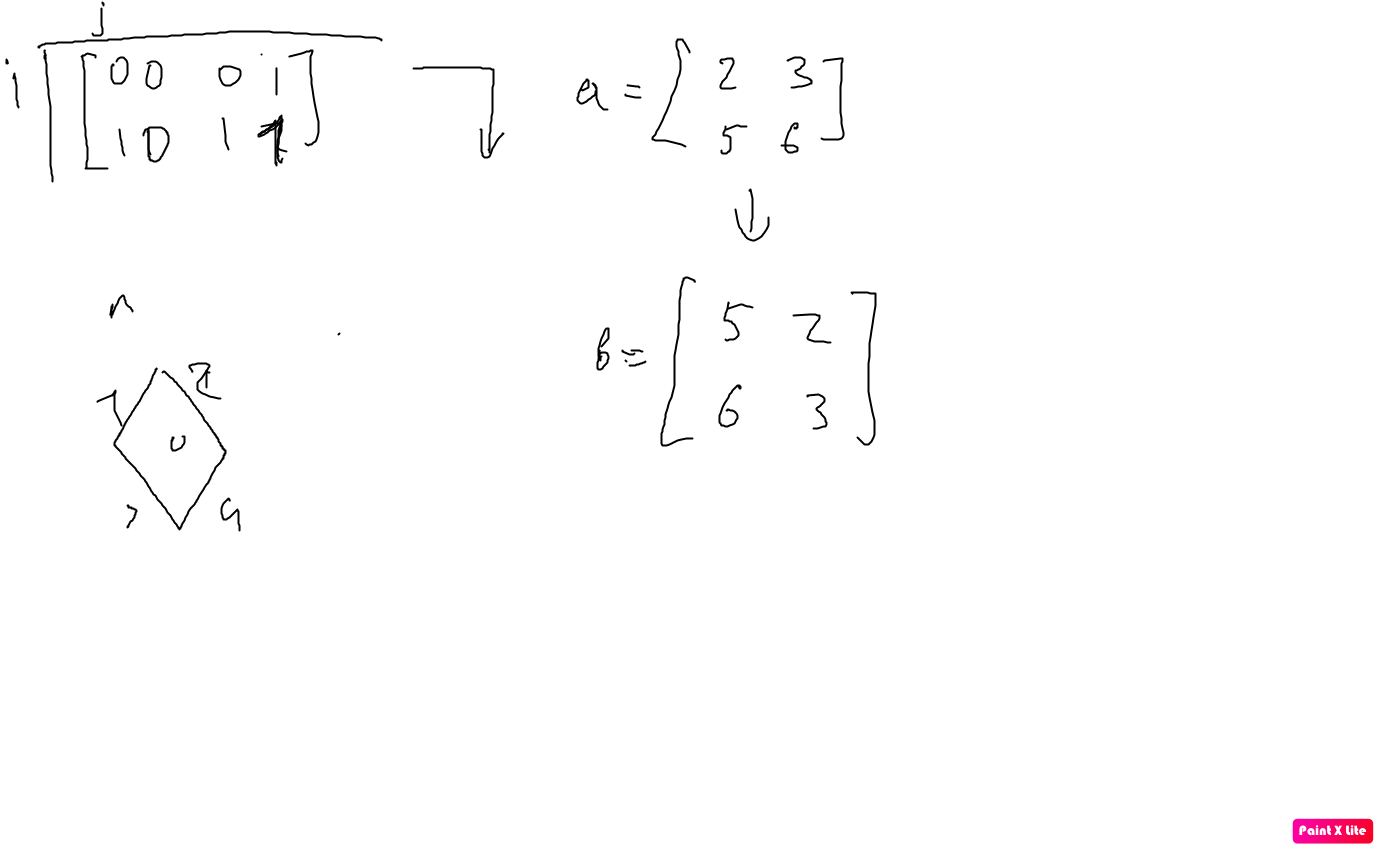 j
i
0 0 0 1
1 0 1 1
a = [ 2 3
5 6 ]
b = [ 5 2
6 3 ]
n
0
Paint X Lite